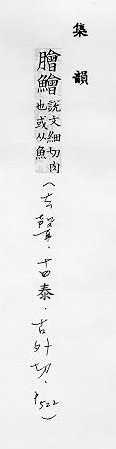 集韻
膾鱠說文細切肉也或从魚(去聲.十四泰.古外切.P522)